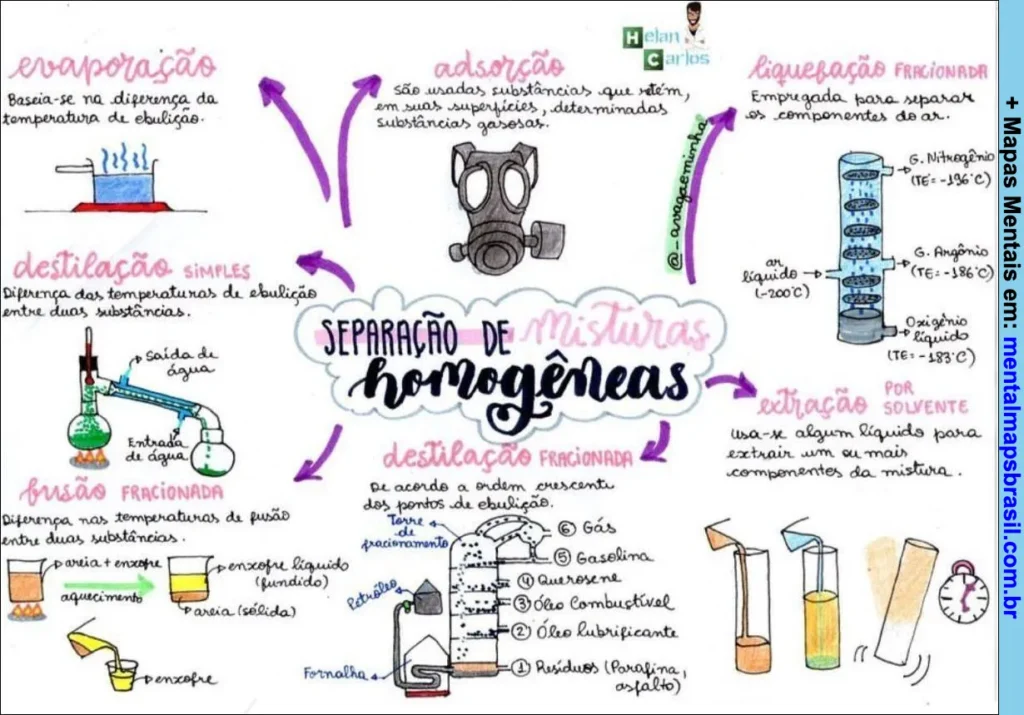 SEPARAÇÃO DE misturas
homogêneas
evaporação
Baseia-se na diferença da
temperatura de ebulição.
adsorção
São usadas substâncias que retém,
em suas superfícies, determinadas
substâncias gasosas.
Helan
Carlos
@-avagaominha
liquefação FRACIONADA
Empregada para separar
os componentes do ar.
G. Nitrogênio
(TE= -196°C)
G. Argônio
(TE= -186°C)
ar
líquido
(-200°C)
Oxigênio
líquido
(TE= -183°C)
destilação SIMPLES
Diferença das temperaturas de ebulição
entre duas substâncias.
Saída de
água
Entrada
de água
extração POR
SOLVENTE
Usa-se algum líquido para
extrair um ou mais
componentes da mistura.
fusão FRACIONADA
Diferença nas temperaturas de fusão
entre duas substâncias.
areia + enxofre
aquecimento
enxofre líquido
(fundido)
areia (sólida)
enxofre
destilação FRACIONADA
De acordo a ordem crescente
dos pontos de ebulição.
Torre
de
fracionamento
Petróleo
Fornalha
⑥ Gás
⑤ Gasolina
④ Querosene
③ Óleo Combustível
② Óleo lubrificante
① Resíduos (Parafina,
asfalto)
+ Mapas Mentais em: mentalmapsbrasil.com.br